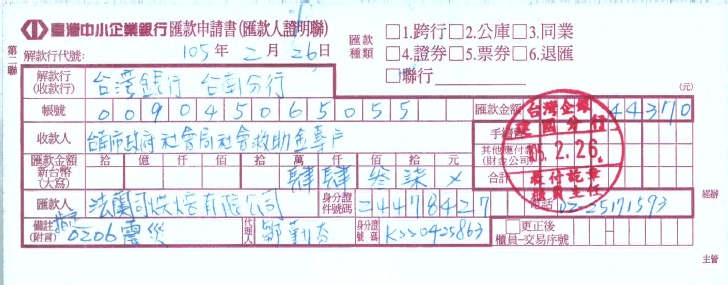 臺灣中小企業銀行匯款申請書(匯款人證明聯)
第二聯
解款行代號: 105年2月26日
匯款種類 □1.跨行□2.公庫□3.同業
□4.證券□5.票券□6.退匯
□聯行
(元)
解款行(收款行) 台灣銀行 台南分行
帳號 009045065055 匯款金額 44370
收款人 台南市政府社會局社會救助金專戶 手續費
其他應付款(財金公司)
匯款金額新台幣(大寫) 拾億仟佰拾萬仟佰拾元 合計
肆肆參柒
台灣企銀
建國分行
105.2.26.
收付訖章
櫃員主任
匯款人 法蘭司烘焙有限公司 身分證件號碼 24478427 電話 02-25171593
備註(附言) 指定0206震災 代理人 身分證號碼 K220425863 □更正後櫃員-交易序號
經辦
主管